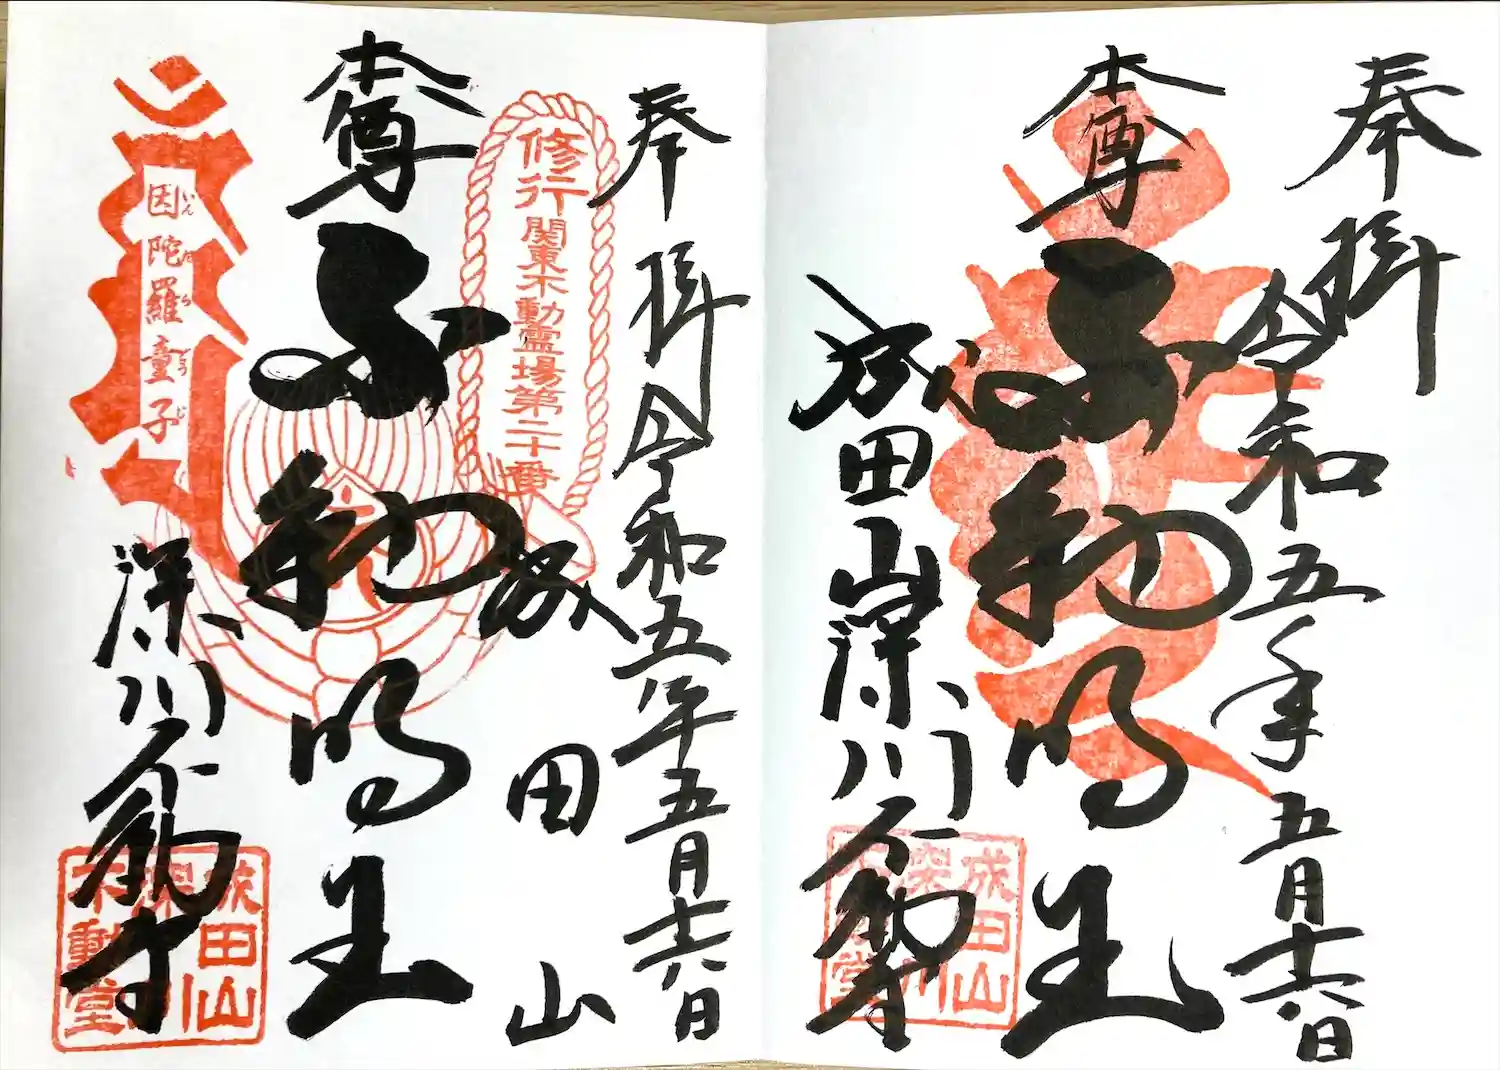 奉拝
令和五年五月十六日
本尊
不動明王
成田山深川不動堂
成田山
深川
不動堂
奉拝
令和五年五月十六日
修行関東不動霊場第二十番
成田山
本尊
不動明王
因陀羅童子
いんだらどうじ
深川不動堂
成田山
深川
不動堂